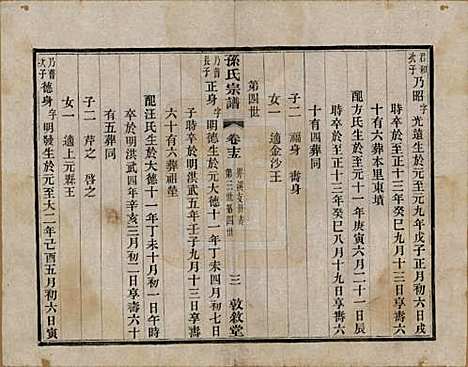 君和次子 乃昭 字光遠生於元至元九年戊子正月初六日戌
時卒於至正十三年癸巳九月十三日享壽六
十有六葬本里東墳
配方氏生於元至元十一年庚寅六月二十一日辰
時卒於至正十三年癸巳八月十九日享壽六
十有四葬同
子二 福身 壽身
女一 適金沙王
第四世
孫氏宗譜 卷十五 第三世第四世 三 敦敘堂
乃普長子 正身 字明德生於元大德十一年丁未四月初七日
子時卒於明洪武五年壬子九月十三日享壽
六十有六葬祖塋
配汪氏生於大德十一年丁未十月初一日午時
卒於明洪武四年辛亥三月初一日享壽六十
有五葬同
子二 芹之 啓之
女一 適上元縣王
乃普次子 德身 字明發生於元至大二年己酉五月初六日寅